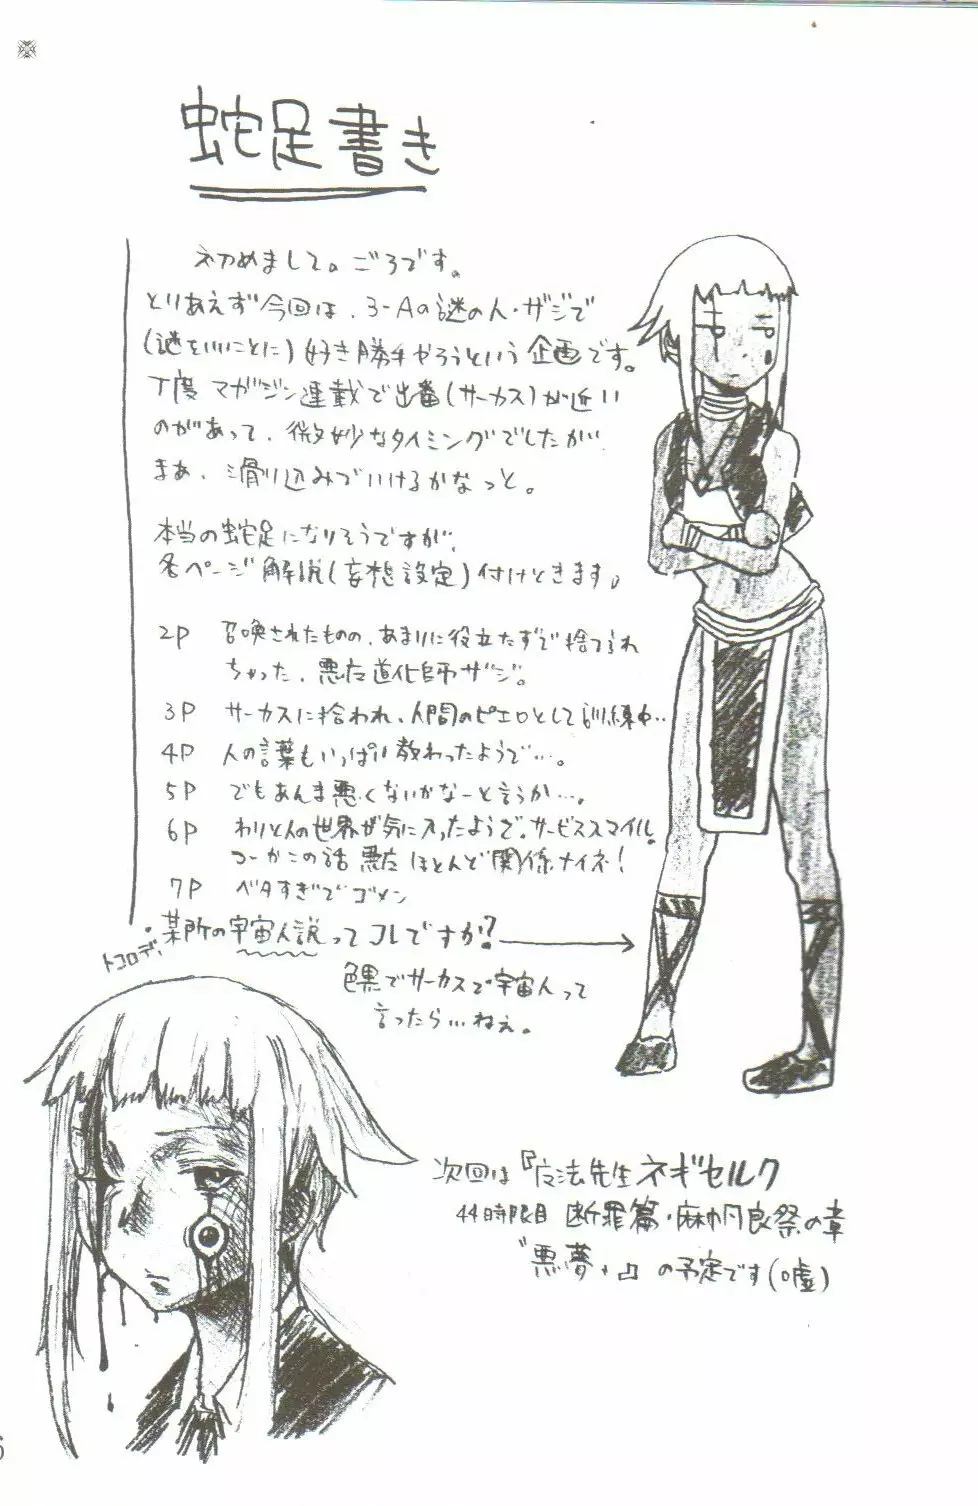 蛇足書き
初めまして。ごろです。
とりあえず今回は、3-Aの謎の人・ザジで
(謎をいいことに)好き勝手やろうという企画です。
丁度マガジン連載で出番(サーカス)が近い
のがあって、微妙なタイミングでしたが
まぁ、滑り込みでいけるかなっと。
本当の蛇足になりそうですが、
各ページ解説(妄想設定)付けときます。
2P 召喚されたものの、あまりに役立たずで捨てられ
ちゃった、悪魔道化師ザジ。
3P サーカスに拾われ、人間のピエロとして訓練中..
4P 人の言葉もいっぱい教わったようで…。
5P でもあんま悪くないかなーと言うか…。
6P わりと人の世界が気に入ったようで、サービススマイル。
つーかこの話悪魔ほとんど関係ナイネ!
7P ベタすぎでゴメン
・某所の宇宙人説ってコレですか?
トコロデ、
色黒でサーカスで宇宙人って
言ったら…ねぇ。
次回は『魔法先生ネギセルク
44時限目 断罪篇・麻帆良祭の章
"悪夢"』の予定です(嘘)
6